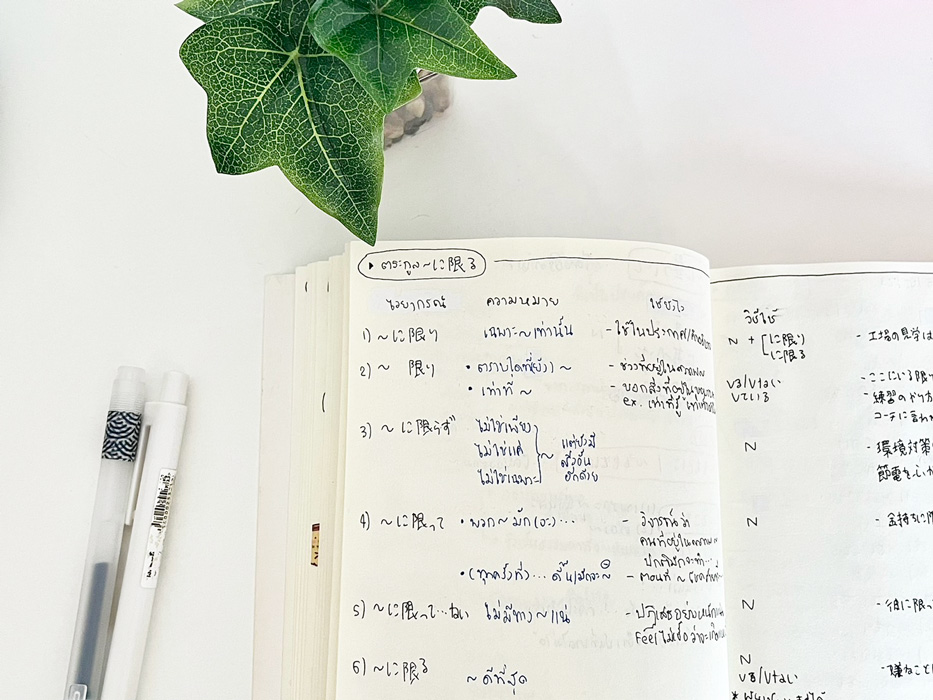 ▸ ตระกูล ~に限る
ไวยากรณ์ ความหมาย ใช้ยังไง
1) ~に限り เฉพาะ~เท่านั้น - ใช้ในประกาศ/
2) ~ 限り • ตราบใดที่(ยัง) ~ - ช่วงที่อยู่ใน
• เท่าที่ ~ - บอกสิ่งที่อยู่ใน
ex. เท่าที่รู้
3) ~に限らず ไม่ใช่เพียง
ไม่ใช่แค่ ~ แต่ยังมี
สิ่งอื่น
ไม่ใช่เฉพาะ อีกด้วย
4) ~に限って • พวก ~ มัก(จะ)... - วิจารณ์ว่า
คนที่อยู่ใน
ปกติมักจะทำ...
- ตอนที่ ~
5) ~に限って...ない ไม่มีทาง ~ แน่ - ปฏิเสธอย่าง
Feel ไม่เชื่อว่าจะ
6) ~に限る ~ ดีที่สุด
วิธีใช้
N + [に限り - 工場の見学は
に限る
Vる/Vない - ここにいる限
Vている - 練習のやり方
コーチに言わ
N - 環境対策
節電を心が
N - 金持ちに限
N - 彼に限っ
N
Vる/Vない - 嫌なこと